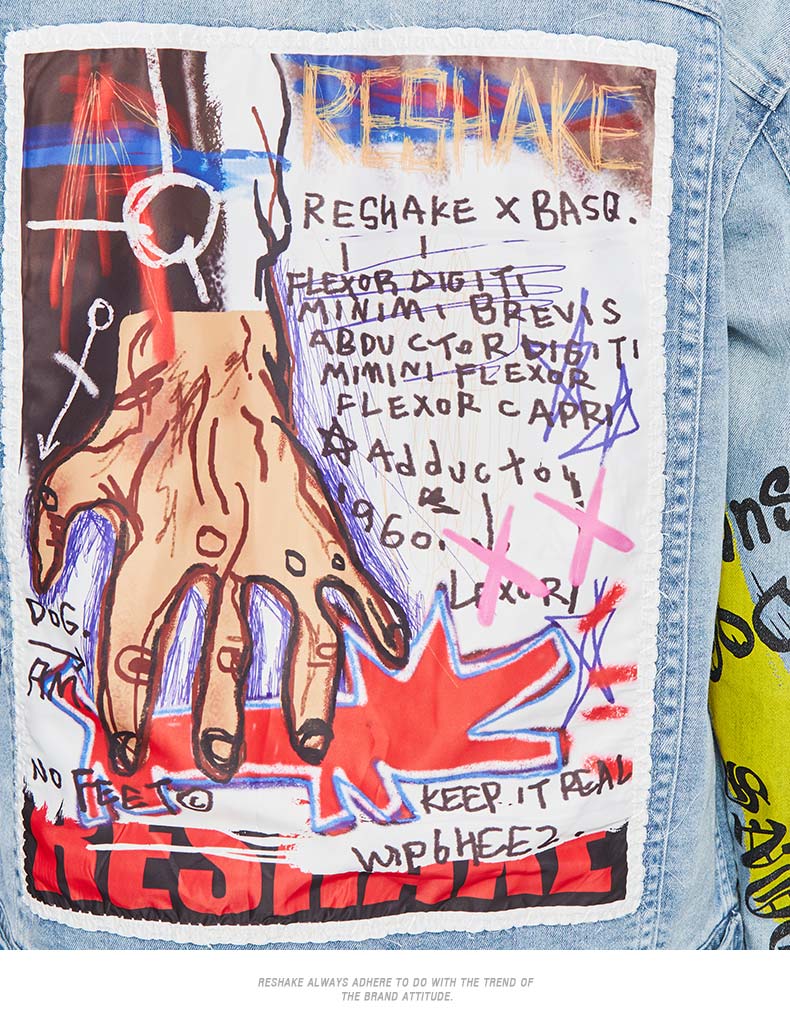 RESHAKE
RESHAKE X BASQ.
FLEXOR DIGITI
MINIMI BREVIS
ABDUCTOR DIGITI
MIMINI FLEXOR
FLEXOR CAPRI
Adductor
1960.
LEXURY
DOG.
AM
NO FEET ©
KEEP IT REAL
WIP6HEE2.
RESHAKE
RESHAKE ALWAYS ADHERE TO DO WITH THE TREND OF
THE BRAND ATTITUDE.